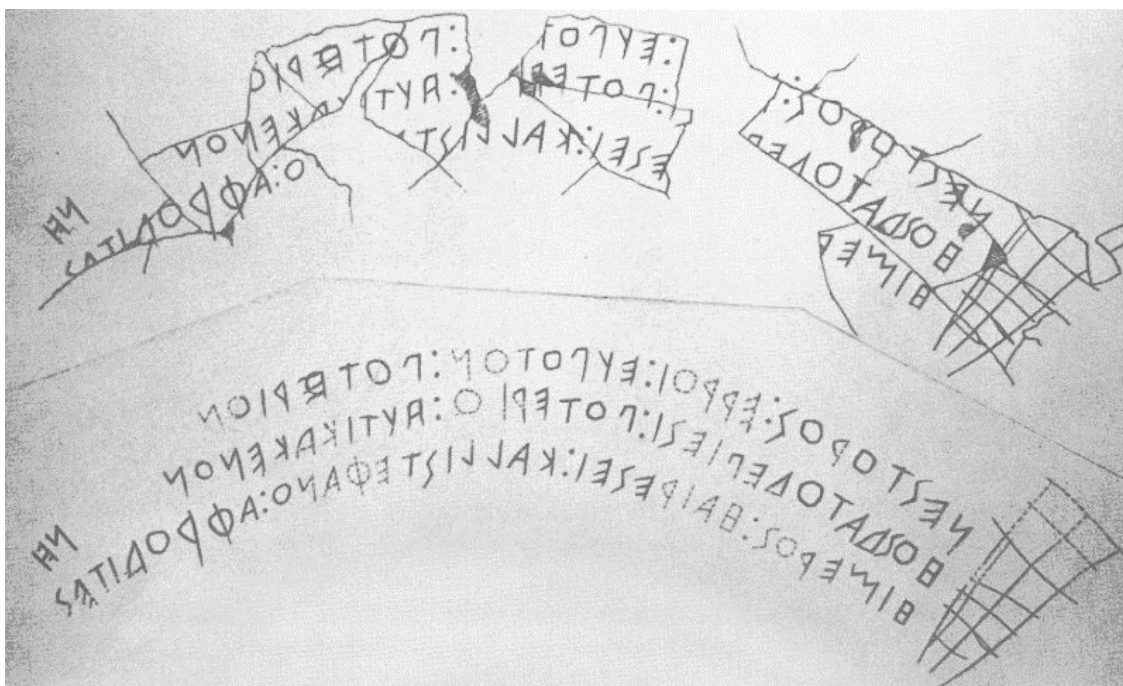 ΝΕΣΤΟΡΟΣ: :ΕΥΠΟΤ :ΠΟΤΕΡΙΟ
ΗΟΣΔΑΤΟΔΕ :ΠΟΤΕΡΙ :ΑΥΤΙ ΚΕΝΟΝ
ΗΙΜΕΡ ΕΣΕΙ:ΚΑΛΛΙΣΤ Ο:ΑΦΡΟΔΙΤΕΣ
ΝΕΣΤΟΡΟΣ:ΕΡΡΟΙ:ΕΥΠΟΤΟΝ:ΠΟΤΕΡΙΟΝ
ΗΟΣΔΑΤΟΔΕΠΙΕΣΙ:ΠΟΤΕΡΙΟ:ΑΥΤΙΚΑΚΕΝΟΝ
ΗΙΜΕΡΟΣ:ΗΑΙΡΕΣΕΙ:ΚΑΛΛΙΣΤΕΦΑΝΟ:ΑΦΡΟΔΙΤΕΣ